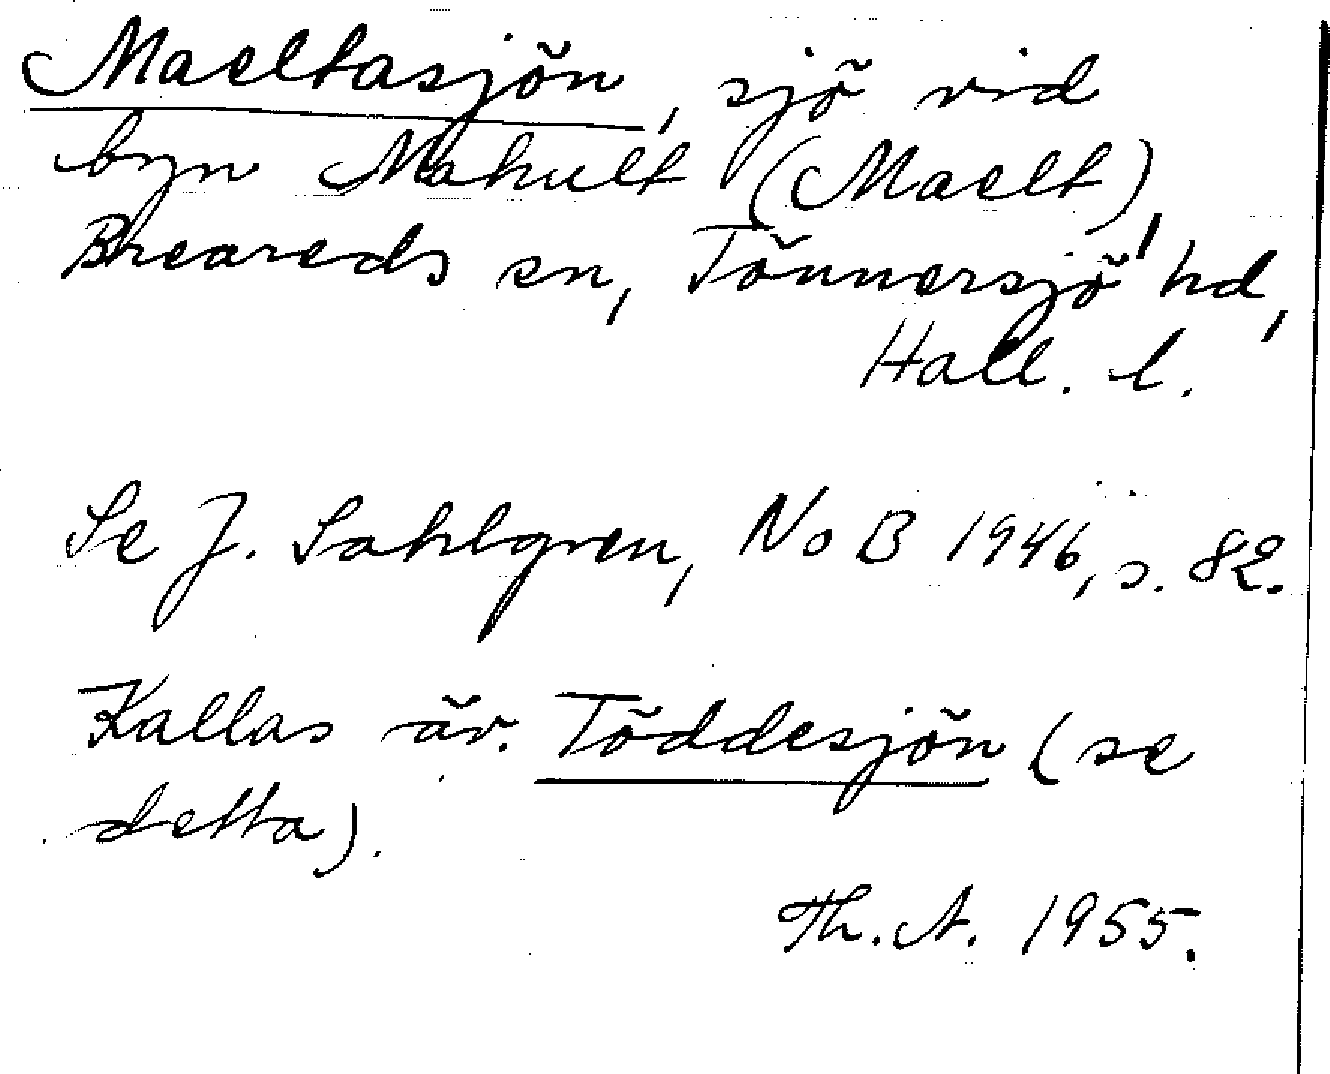 Maeltasjön, sjö vid
byn Mahult (Maelt),
Breareds sn, Tönnersjö hd,
Hall. l.
Se J. Sahlgren, NoB 1946, s. 82.
Kallas äv. Töddesjön (se
detta).
Th. A. 1955.